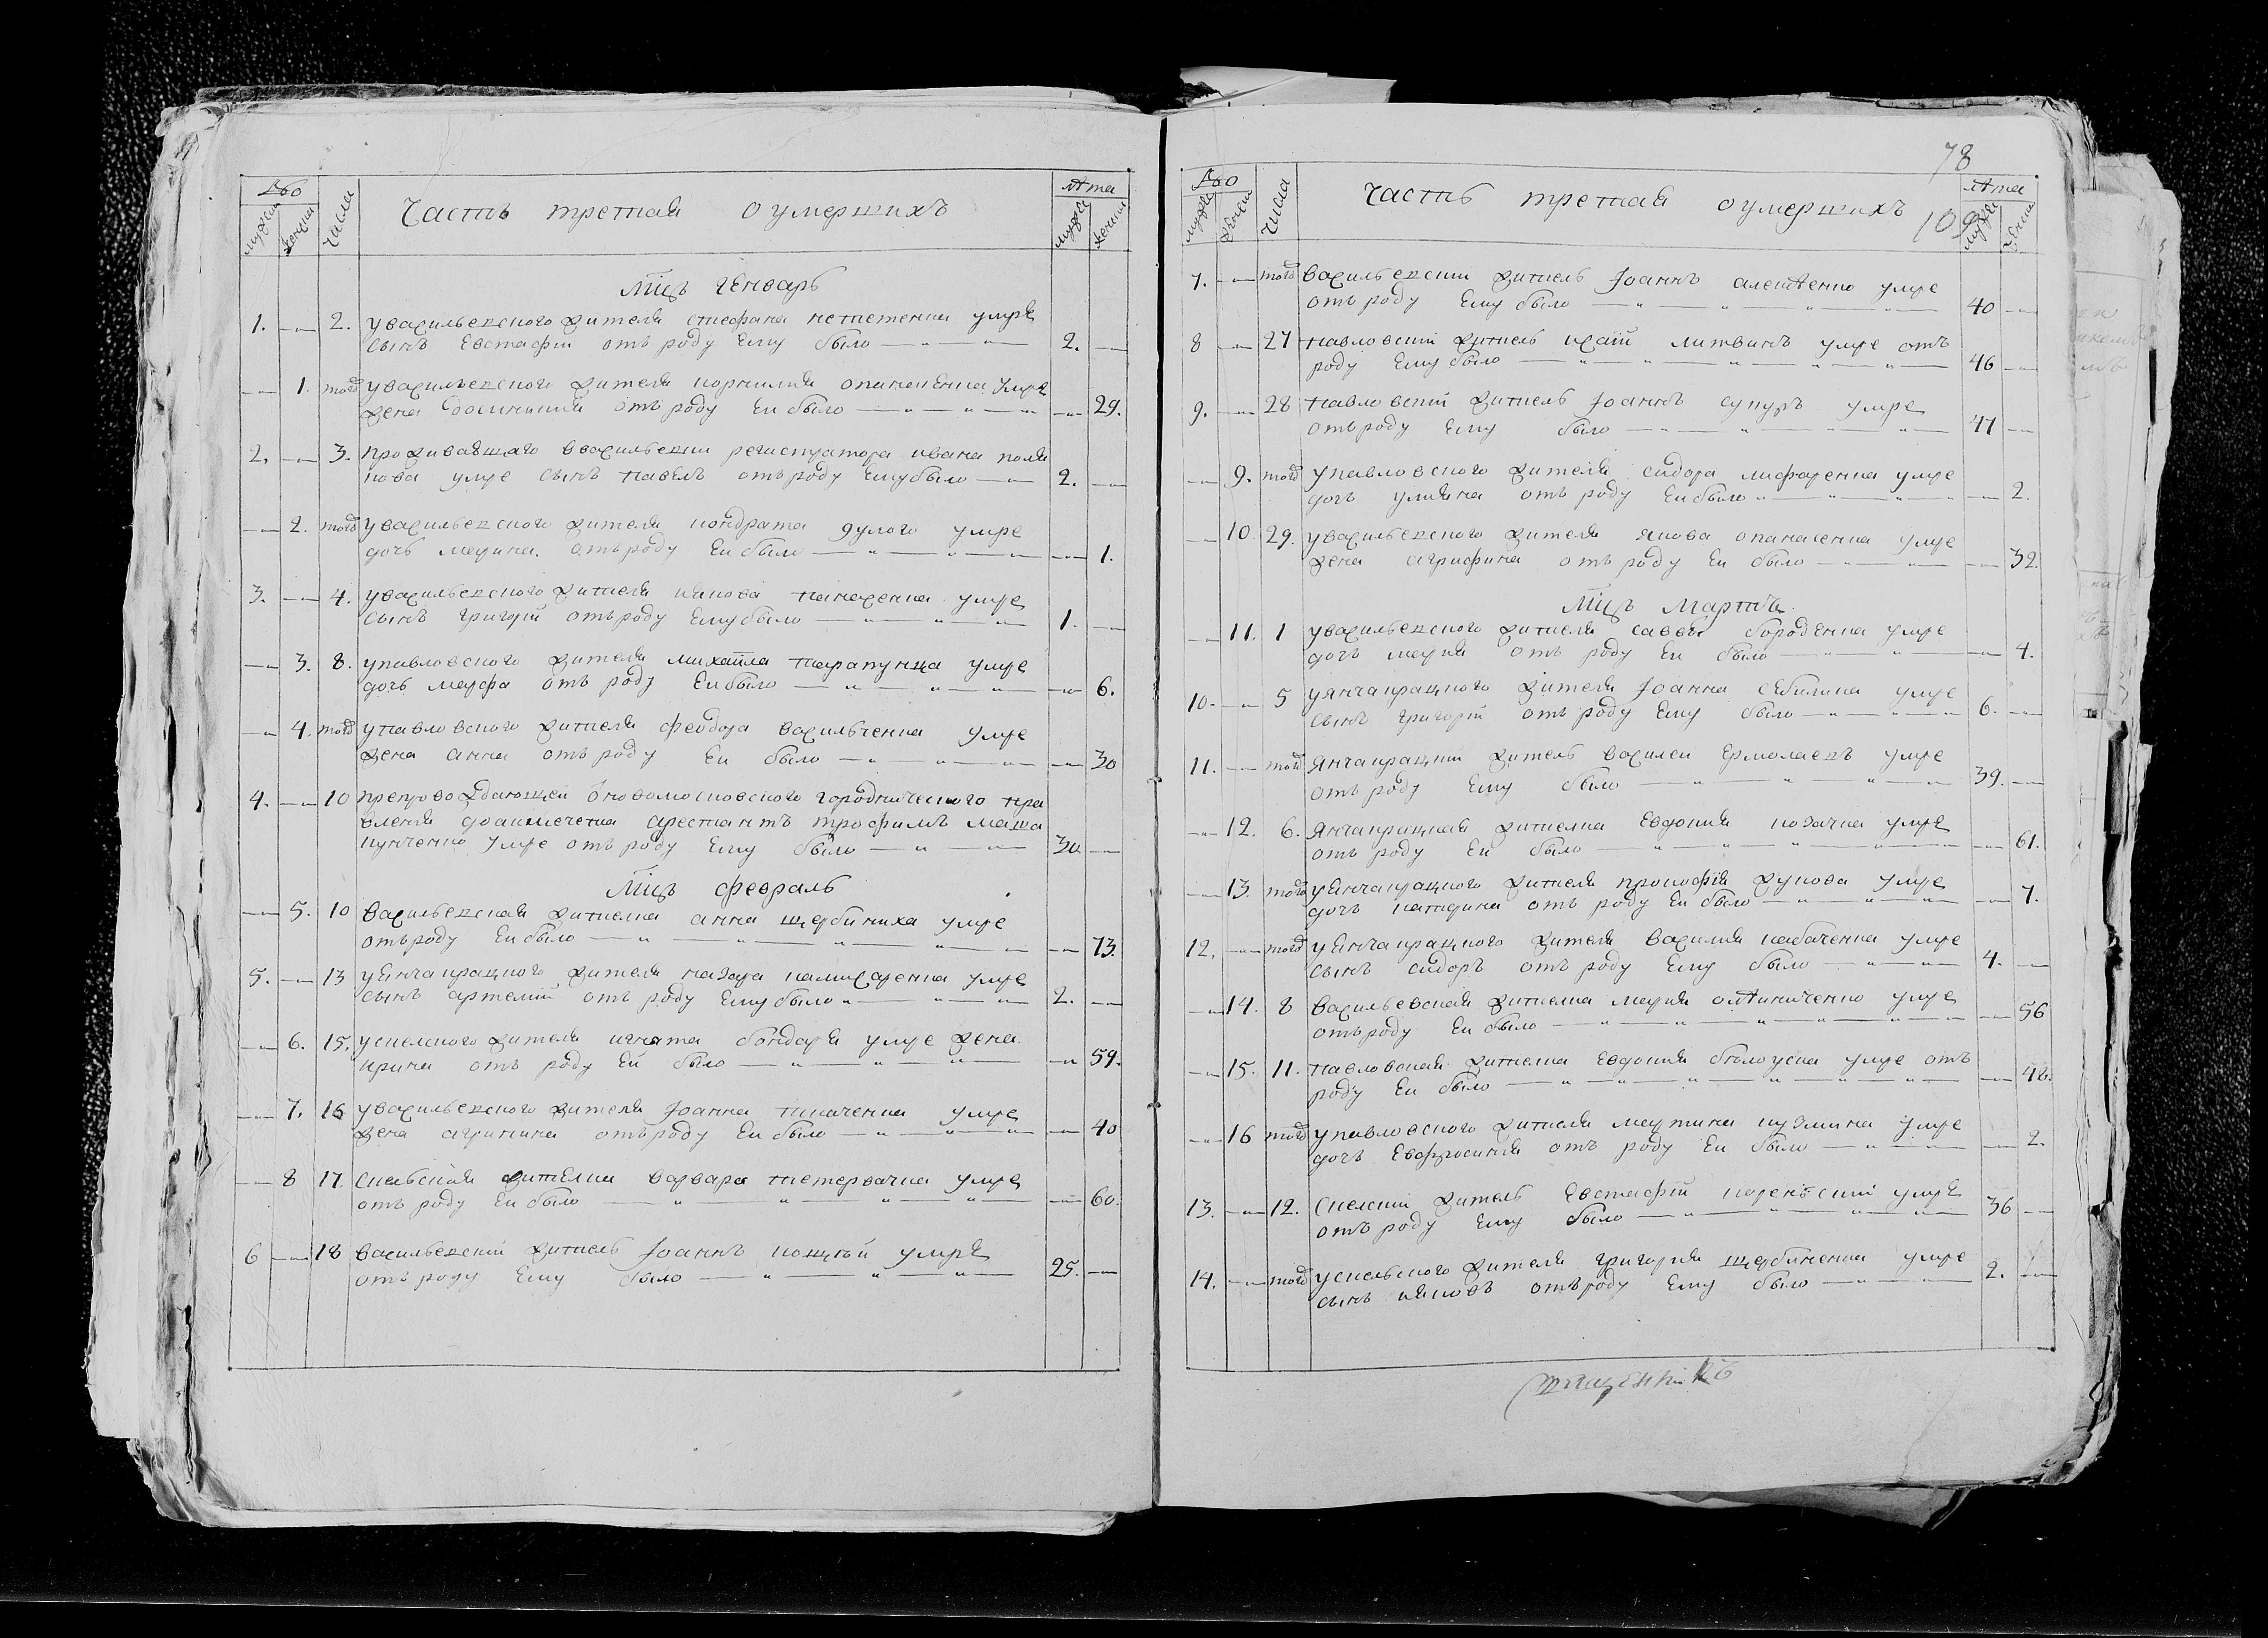 Часть третая оумершихъ
число
лѣта
мцъ генварь
1. 2. уваслиьевского жителя стефана нететенка умре
сынъ Евстафiй отъ роду Ему было 2.
1. того уvасильевского жителя корнилия опанасенка умре
жена отъ роду Ей было 29.
2. 3. проживавшаго ввасильевки регистратора ивана поля
кова умре сынъ павелъ отъ роду Ему было 2.
2. того уvасильевского жителя кондрата дулого умре
дочь марина. отъ роду Ей было 1.
3. 4. уvасильевского жителя иякова панасенка умре
сынъ григорiй отъ роду Ему было 1.
3. 8. упавловского жителя михаила умре
дочь марфа отъ роду Ей было 6.
4. того упавловского жителя феодора васильченка умре
жена анна отъ роду Ей было 30
4. 10 препровождающей новомосковского городническаго пра
вления арестантъ трофимъ
умре отъ роду Ему было 30.
мцъ февраль
5. 10 васильевская жителка анна щербиниха умре
отъ роду Ей было 73.
5. 13 уянчакрацкого жителя назара умре
сынъ артемiй отъ роду Ему было 2.
6. 15. успаского жителя игната бондаря умре жена
ирина отъ роду Ей было 59.
7. 16 увасильевского жителя Iоанна ткаченка умре
жена отъ роду Ей было 40
8 17. спасьская жителка варвара умре
отъ роду Ей было 60.
6 18 васильевскiй житель Iоаннъ коцкiй умре
отъ роду Ему было 25.
78
Часть третая оумершихъ
109
число
лѣта
7. того васильевскiй житель Iоаннъ алексѣенко умре
отъ роду Ему было 40
8 27 павловскiй житель исаiй литвинъ умре отъ
роду Ему было 46
9. 28 павловскiй житель Iоаннъ супруъ умре
отъ роду Ему было 47
9. того упавловского жителя сидора умре
дочь улияна отъ роду Ей было 2.
10 29. увасильевского жителя якова опанасенка умре
жена агрифина отъ роду Ей было 32.
мцъ мартъ
11. 1 увасильевского жителя саввы бороденка умре
дочь мария отъ роду Ей было 4.
10. 5 уянчакрацкого жителя Iоанна умре
сынъ григорiй отъ роду Ему было 6.
11. того янчакрацкiй житель василей Ермолаевъ умре
отъ роду Ему было 39.
12. 6. янчакрацкая жителка Евдокия козачка умре
отъ роду Ей было 61.
13. того уянчакрацкого жителя прокофiя жукова умре
дочь катерина отъ роду Ей было 7.
12. того уянчакрацкого жителя василия умре
сынъ сидоръ отъ роду Ему было 4.
14. 8 васильевская жителка мария олѣйниченко умре
отъ роду Ей было 56
15. 11. павловская жителка Евдокия бѣлоуска умре отъ
роду Ей было 48.
16 того упавловского жителя мартина кузмина умре
дочь Евфросиния отъ роду Ей было 2.
13. 12. спаский житель Евстафiй умре
отъ роду Ему было 36
14. того успасьского жителя григория щербиненка умре
сынъ ияковъ отъ роду Ему было 2.